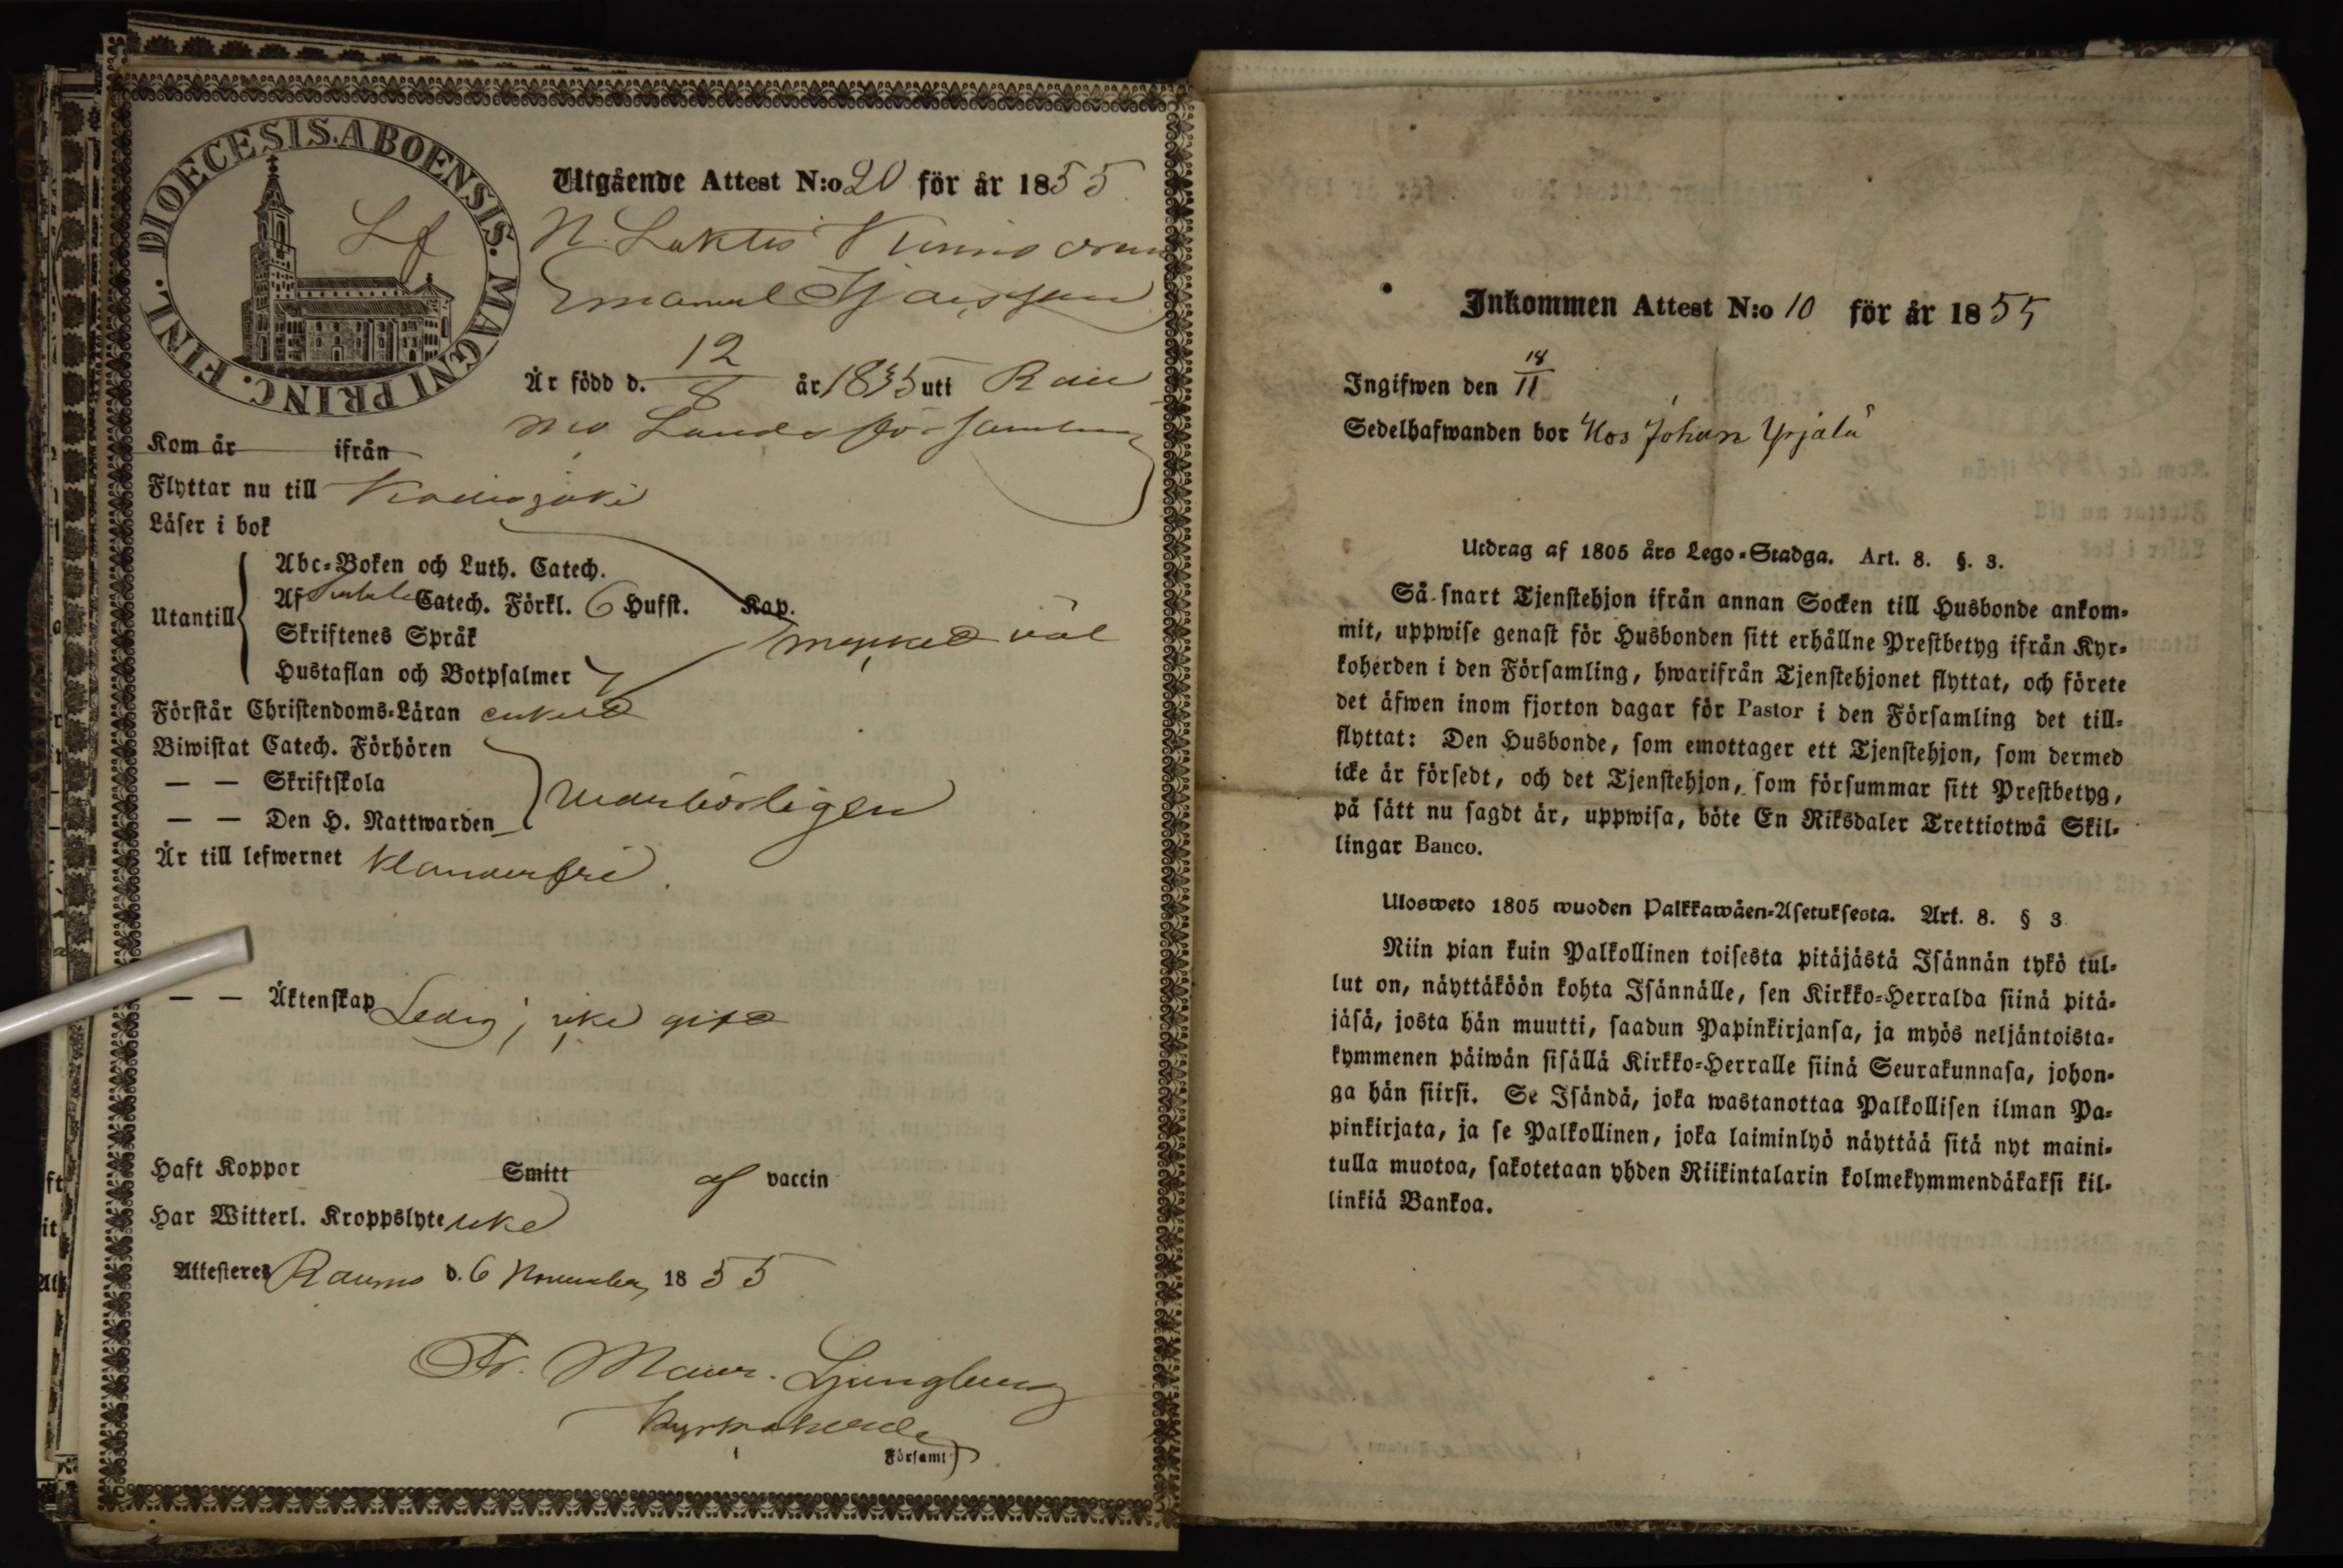 DIOECESIS. ABOENSIS. MAGNI PRINC. FINL.
Lf
Utgående Attest N:o 20 för år 1855
N. Laktis
Emanuel
Är född d. 12/8 år 1835 uti Rau
mo Lands församling
Kom år ifrån
Flyttar nu till
Läser i bok
Utantill
Abc-Boken och Luth. Catech.
Af Catech. Förkl. 6 Hufst. Kap.
Skriftenes Språk
Hustaflan och Botpsalmer
mycket väl
Förstår Christendoms-Läran enkelt
Biwistat Catech. Förhören
— — Skriftskola
— — Den H. Nattwarden
vederbörligen
Är till lefwernet klanderfri.
— — Äktenskap Ledig; icke gift
Haft Koppor Smitt af vaccin
Har Witterl. Kroppslyte icke
Attesteres Raumo d. 6 November 1855
Fr. Maur. Ljungberg
Kyrkoherde
Församl
Inkommen Attest N:o 10 för år 1855
Ingifwen den 18/11
Sedelhafwanden bor Hos Johan Yrjälä
Utdrag af 1805 års Lego-Stadga. Art. 8. §. 3.
Så snart Tjenstehjon ifrån annan Socken till Husbonde ankom-
mit, uppwise genast för Husbonden sitt erhållne Prestbetyg ifrån Kyr-
koherden i den Församling, hwarifrån Tjenstehjonet flyttat, och förete
det äfwen inom fjorton dagar för Pastor i den Församling det till-
flyttat: Den Husbonde, som emottager ett Tjenstehjon, som dermed
icke är försedt, och det Tjenstehjon, som försummar sitt Prestbetyg,
på sätt nu sagdt är, uppwisa, böte En Riksdaler Trettiotwå Skil-
lingar Banco.
Ulosweto 1805 wuoden Palkkawäen-Asetuksesta. Art. 8. § 3
Niin pian kuin Palkollinen toisesta pitäjästä Isännän tykö tul-
lut on, näyttäköön kohta Isännälle, sen Kirkko-Herralda siinä pitä-
jäsä, josta hän muutti, saadun Papinkirjansa, ja myös neljäntoista-
kymmenen päiwän sisällä Kirkko-Herralle siinä Seurakunnasa, johon-
ga hän siirsi. Se Isändä, joka wastanottaa Palkollisen ilman Pa-
pinkirjata, ja se Palkollinen, joka laiminlyö näyttää sitä nyt maini-
tulla muotoa, sakotetaan yhden Riikintalarin kolmekymmendäkaksi kil-
linkiä Bankoa.